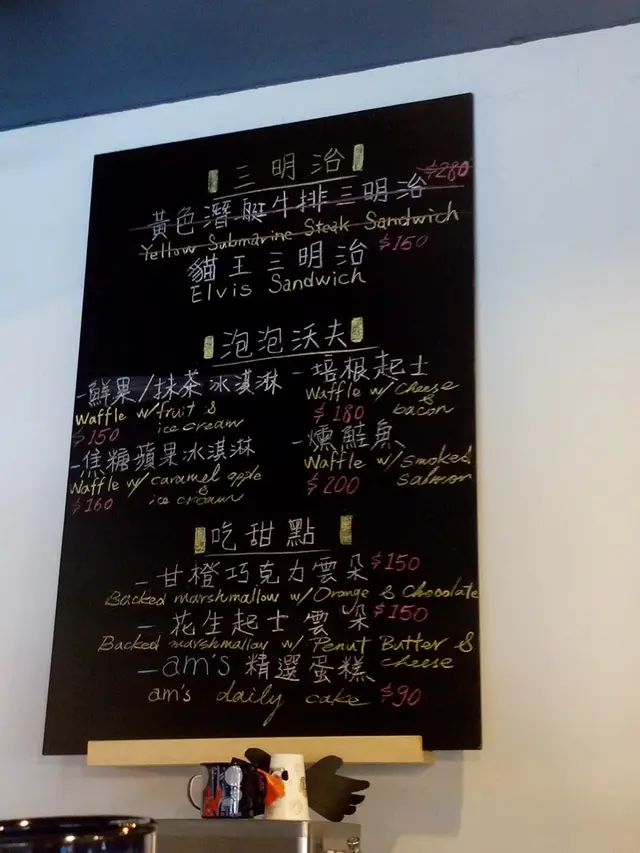 三明治
$280
黃色潛艇牛排三明治
Yellow Submarine Steak Sandwich
貓王三明治 $150
Elvis Sandwich
泡泡沃夫
-鮮果/抹茶冰淇淋
Waffle w/fruit &
ice cream
$150
-焦糖蘋果冰淇淋
Waffle w/ caramel apple
& ice cream
$160
-培根起士
Waffle w/ cheese
& bacon
$180
-燻鮭魚
Waffle w/ smoked
salmon
$200
吃甜點
-甘橙巧克力雲朵 $150
Backed marshmallow w/Orange & Chocolate
-花生起士雲朵 $150
Backed marshmallow w/ Penut Butter &
cheese
-am's 精選蛋糕
am's daily cake $90